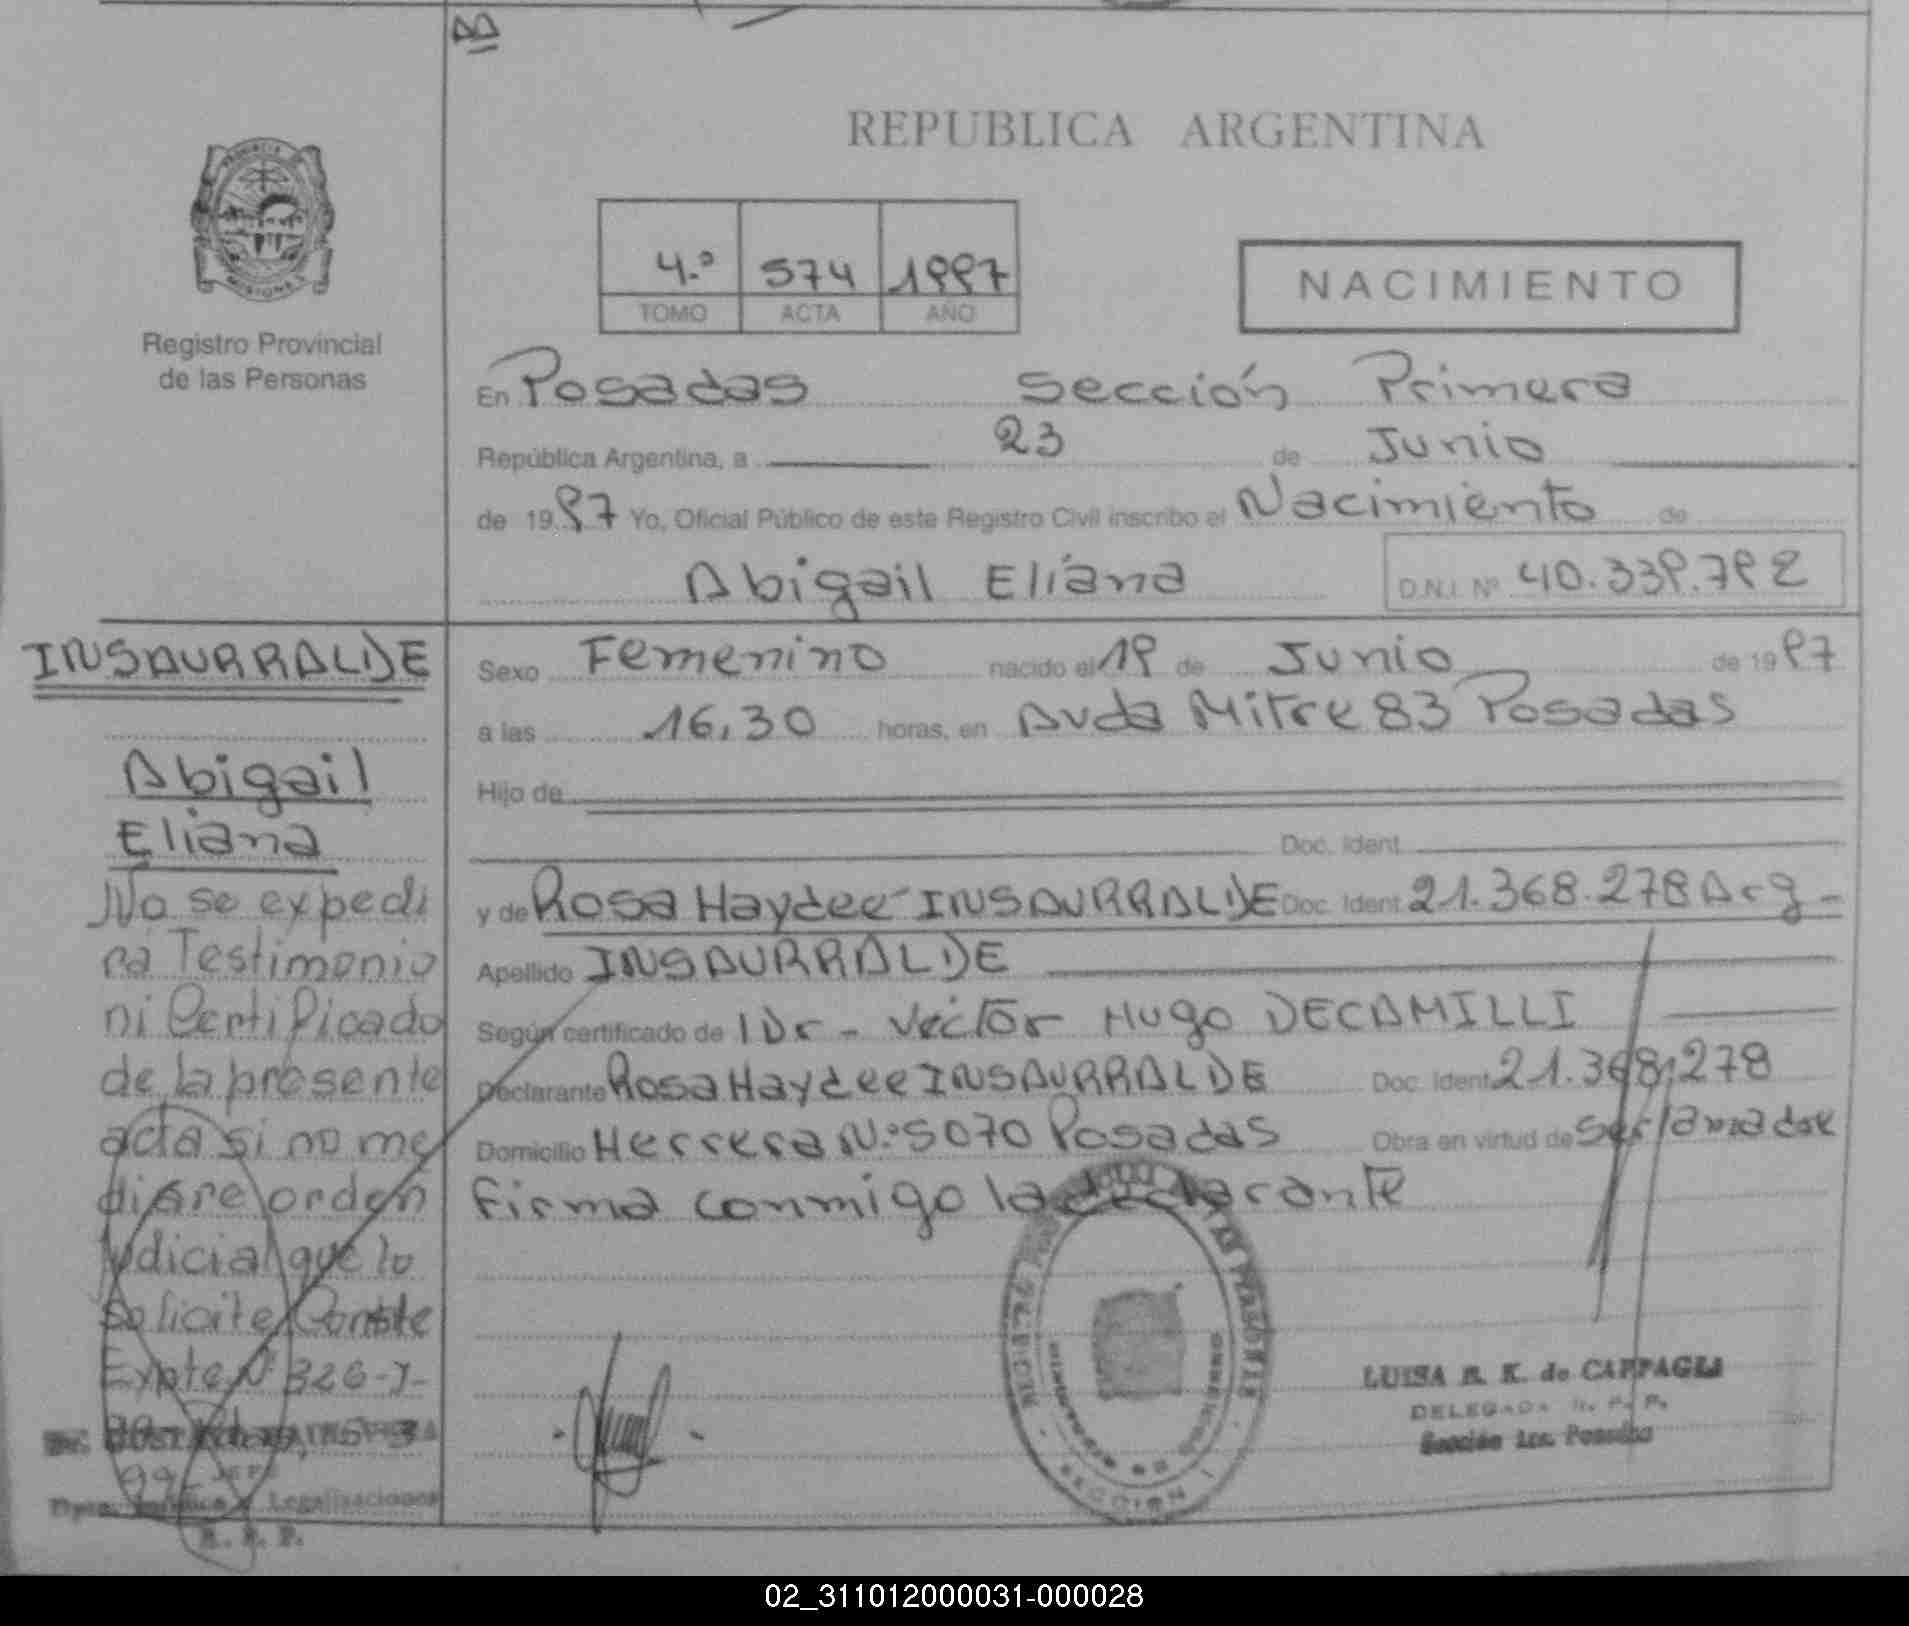 REPUBLICA ARGENTINA
PROVINCIA DE
MISIONES
Registro Provincial
de las Personas
4.º 574 1997
TOMO ACTA AÑO
NACIMIENTO
En Posadas Sección Primera
República Argentina, a 23 de Junio
de 1997 Yo, Oficial Público de este Registro Civil inscribo el Nacimiento de
Abigail Eliana D.N.I. Nº 40.339.792
INSAURRALDE
Abigail
Eliana
No se expedi
rá Testimonio
ni Certificado
de la presente
acta si no me
diare orden
Judicial que lo
solicite Conste
Expte Nº 326-J-
JEFE
Legalizaciones
R. P. P.
Sexo Femenino nacido el 19 de Junio de 1997
a las 16,30 horas, en Avda Mitre 83 Posadas
Hijo de
Doc. Ident.
y de Rosa Haydee INSAURRALDE Doc. Ident. 21.368.278 Arg-
Apellido INSAURRALDE
Según certificado de Dr- Victor Hugo DECAMILLI
Declarante Rosa Haydee INSAURRALDE Doc. Ident. 21.368.278
Domicilio Herrera N.º 5070 Posadas Obra en virtud de ser la madre
Firma conmigo la declarante
LUISA B. K. de CAPPAGLI
DELEGADA R. P. P.
Sección 1ra. Posadas
SECCION
02_311012000031-000028